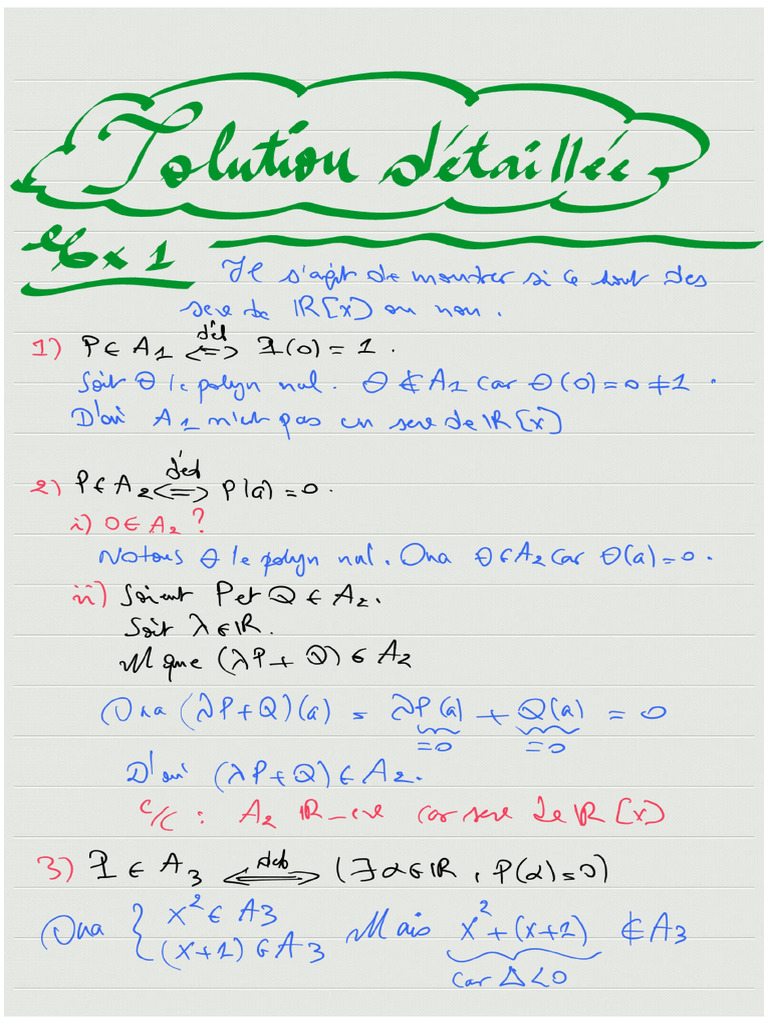 Solution détaillée
Ex 1
Il s'agit de montrer si ce sont des
sev de IR[x] ou non.
1) P ∈ A1 <=> (déf) P(0) = 1.
Soit θ le polyn nul. θ ∉ A1 car θ(0) = 0 ≠ 1.
D'où A1 n'est pas un sev de IR[x]
2) P ∈ A2 <=> (déf) P(a) = 0.
i) 0 ∈ A2 ?
Notons θ le polyn nul. Ona θ ∈ A2 car θ(a) = 0.
ii) Soient P et Q ∈ A2.
Soit λ ∈ IR.
M que (λP + Q) ∈ A2
Ona (λP+Q)(a) = λP(a) + Q(a) = 0
=0 =0
D'où (λP+Q) ∈ A2.
c/c : A2 IR_ev car sev de IR[x]
3) P ∈ A3 <=> (déf) (∃α∈IR, P(α)=0)
Ona { x² ∈ A3
(x+1) ∈ A3 Mais x² + (x+1) ∉ A3
car Δ<0